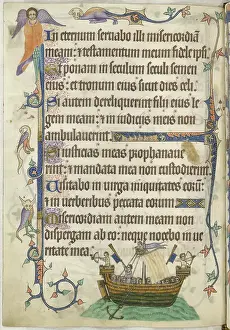 In eternum seruabo illi misericordiā
meam: & testamentum meum fidele ipsi
Et ponam in seculum seculi semen
eius: & tronum eius sicut dies celi
Si autem dereliquerint filii eius le
gem meam: & in iudiciis meis non
ambulauerint
Si iusticias meas prophanaue
rint: & mandata mea non custodierint
Visitabo in uirga iniquitates eorū:
& in uerberibus peccata eorum
Misericordiam autem meam non
dispergam ab eo: neque nocebo in ue
ritate mea